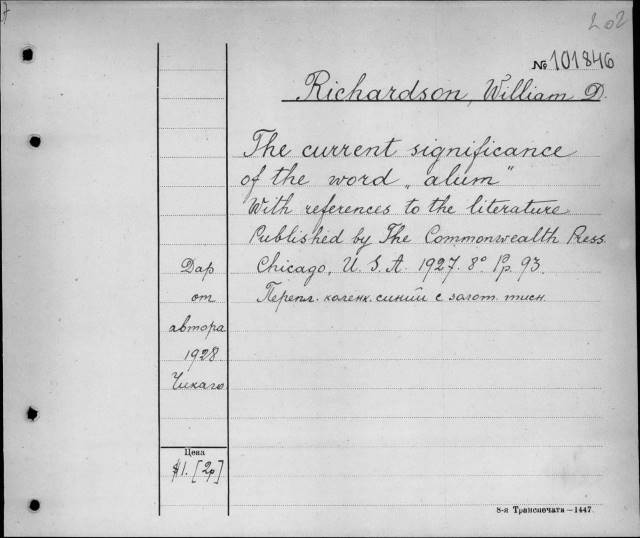 202
№ 101846
Richardson, William D.
The current significance
of the word „alum"
With references to the literature
Published by The Commonwealth Press
Chicago, U. S. A. 1927. 8° Pp. 93.
Перепл. коленк. синий с золот. тисн.
Дар
от
автора
1928
Чикаго
Цена
$1. [2р]
8-я Транспечать — 1447.